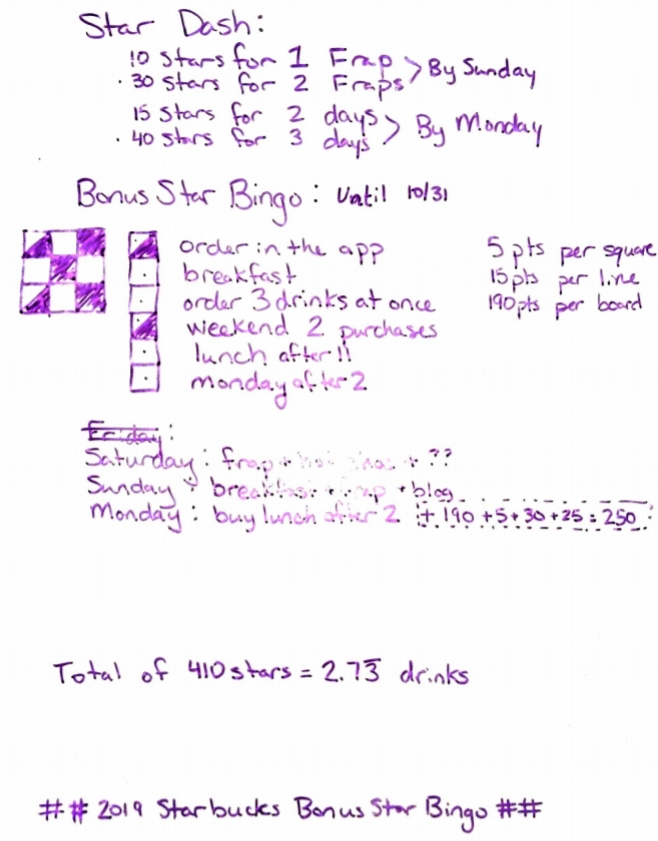 Star Dash:
10 stars for 1 Frap > By Sunday
· 30 stars for 2 Fraps
15 stars for 2 days > By Monday
· 40 stars for 3 days
Bonus Star Bingo: Until 10/31
order in the app 5 pts per square
breakfast 15 pts per line
order 3 drinks at once 190 pts per board
weekend 2 purchases
lunch after 11
monday after 2
Friday:
Saturday: frap + + ??
Sunday: breakfast + frap + blog
Monday: buy lunch after 2 + 190 + 5 + 30 + 25 = 250
Total of 410 stars = 2.73 drinks
## 2019 Starbucks Bonus Star Bingo ##